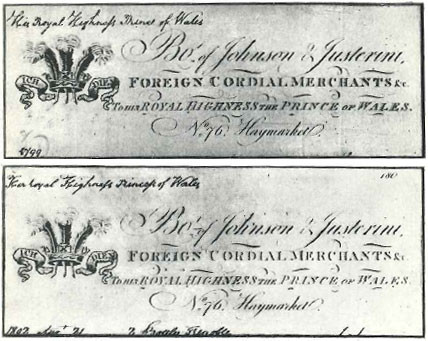 His Royal Highness Prince of Wales
Bot. of Johnson & Justerini,
ICH DIEN
FOREIGN CORDIAL MERCHANTS &c.
To HIS ROYAL HIGHNESS THE PRINCE OF WALES.
No. 76, Haymarket.
1799
Her Royal Highness Princess of Wales
180
Bot. of Johnson & Justerini,
ICH DIEN
FOREIGN CORDIAL MERCHANTS &c.
To HIS ROYAL HIGHNESS THE PRINCE OF WALES.
No. 76, Haymarket.
1802